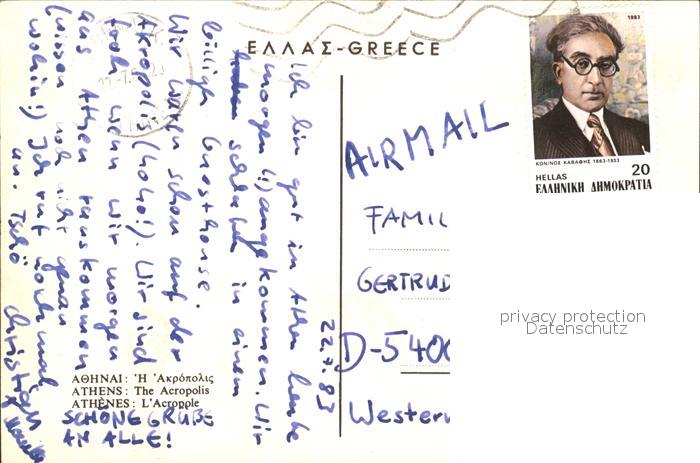 ΕΛΛΑΣ-GREECE
1983
ΚΩΝ/ΝΟΣ ΚΑΒΑΦΗΣ 1863-1933
HELLAS 20
ΕΛΛΗΝΙΚΗ ΔΗΜΟΚΡΑΤΙΑ
22.7.83
Ich bin gut in Athen heute
morgen angekommen. Wir
schlafen in einem
billigen Guesthouse.
Wir waren schon auf der
Akropolis (hoho!). Wir sind
froh wenn wir morgen
aus Athen rauskommen
(wissen noch nicht genau
wohin!) Ich ruf nochmal
an. Tschö
Christian
SCHÖNE GRÜßE
AN ALLE!
AIRMAIL
FAMIL
GERTRUD
D-540
Western
ΑΘΗΝΑΙ: Ἡ Ἀκρόπολις
ATHENS: The Acropolis
ATHÈNES: L'Acropole
privacy protection
Datenschutz